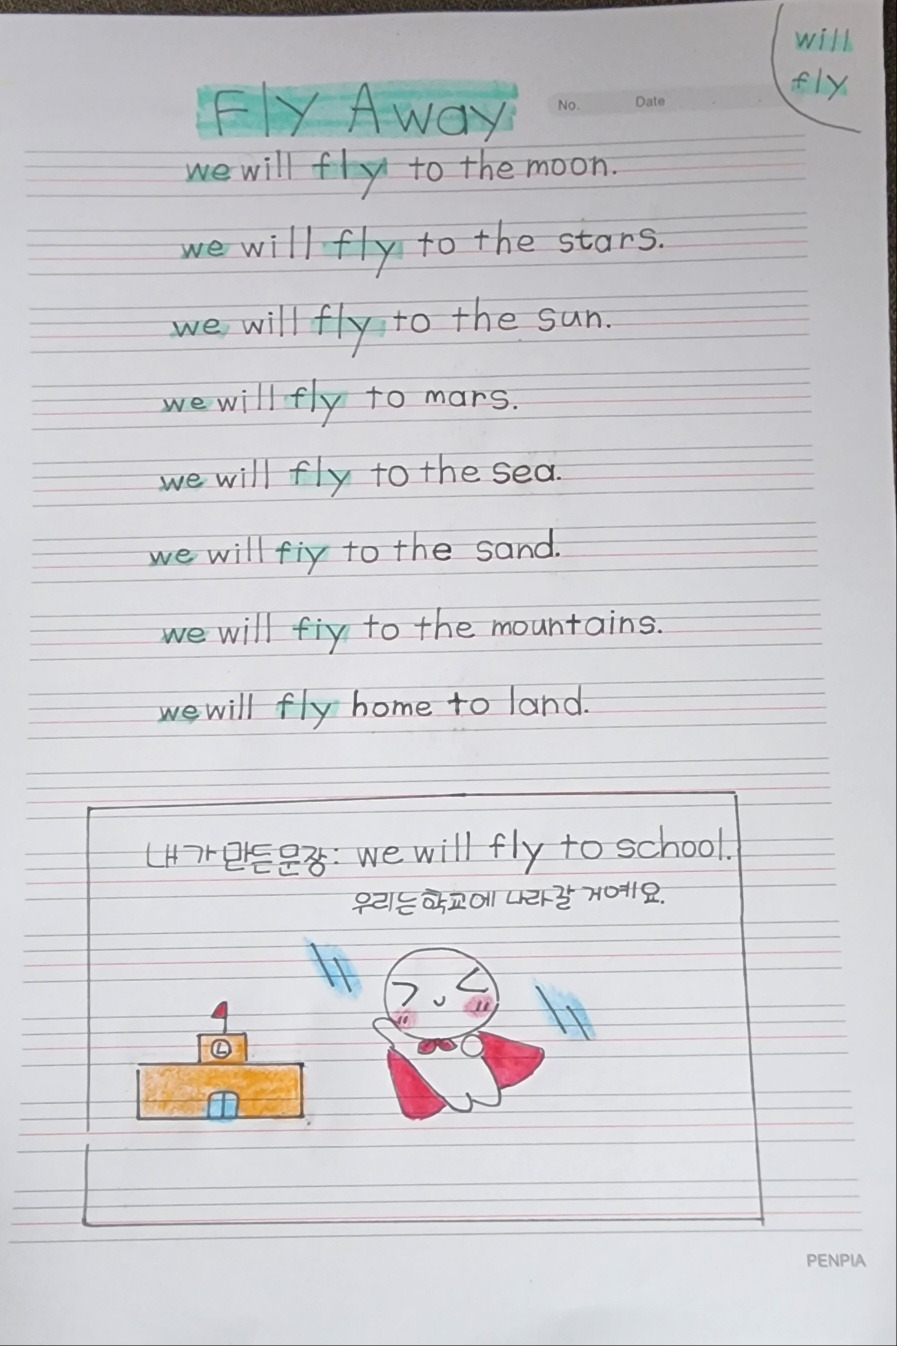 will
fly
Fly Away
No. Date
we will fly to the moon.
we will fly to the stars.
we will fly to the sun.
we will fly to mars.
we will fly to the sea.
we will fiy to the sand.
we will fiy to the mountains.
we will fly home to land.
내가 만든 문장: we will fly to school.
우리는 학교에 나라갈 거예요.
PENPIA